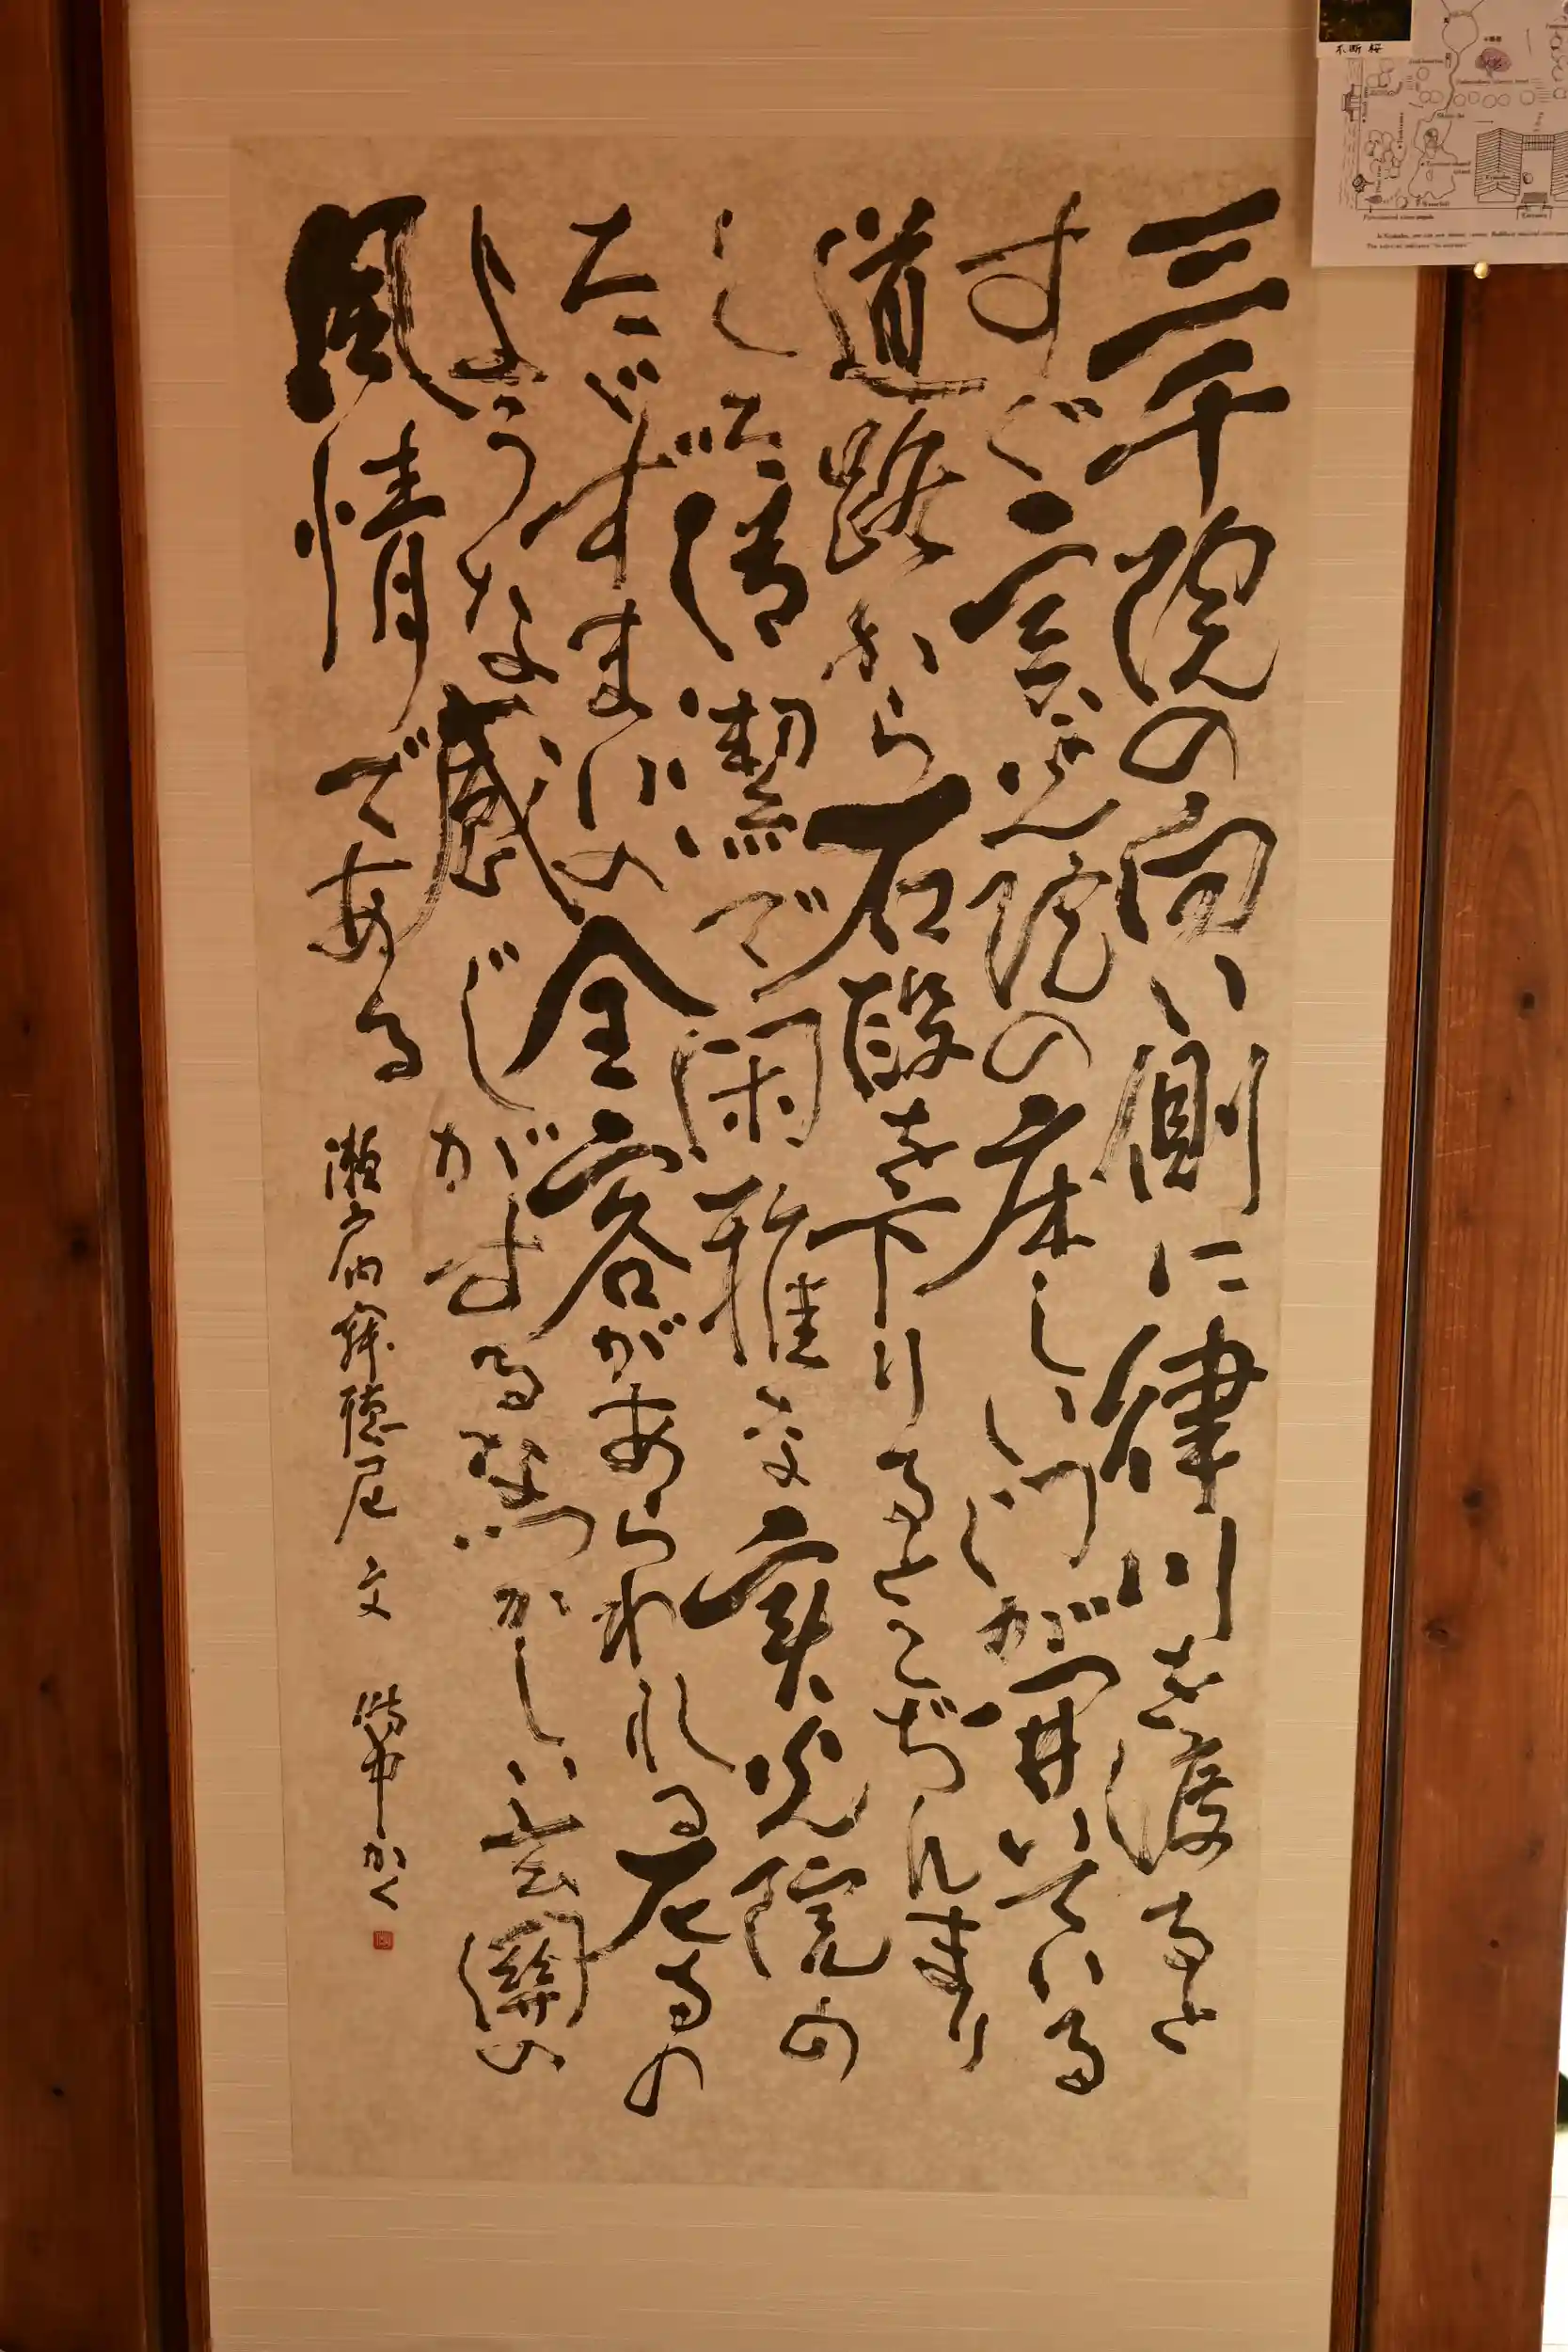 三千院の向い側に律川を渡ると
すぐ実光院の床しい門が開いている
道路から石段を下りるとこぢんまり
した清潔で閑雅な実光院の
たゞずまいの全容があらわれる尼寺の
ような感じがするなつかしい玄関の
風情である
瀬戸内寂聴尼 文 かく
不断桜